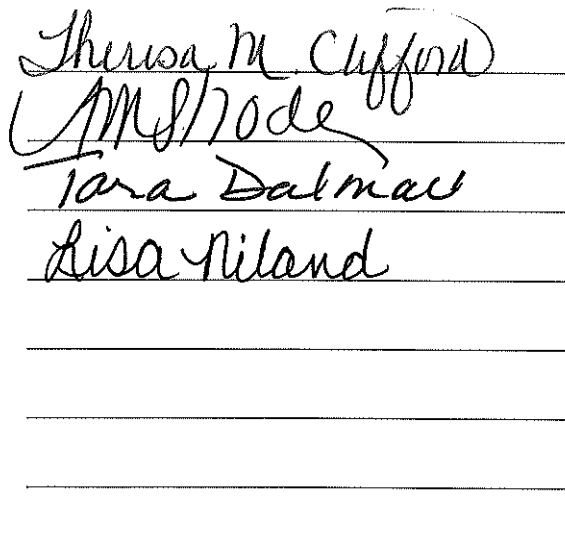 Theresa M. Clifford
Tara Dalmau
Lisa Niland